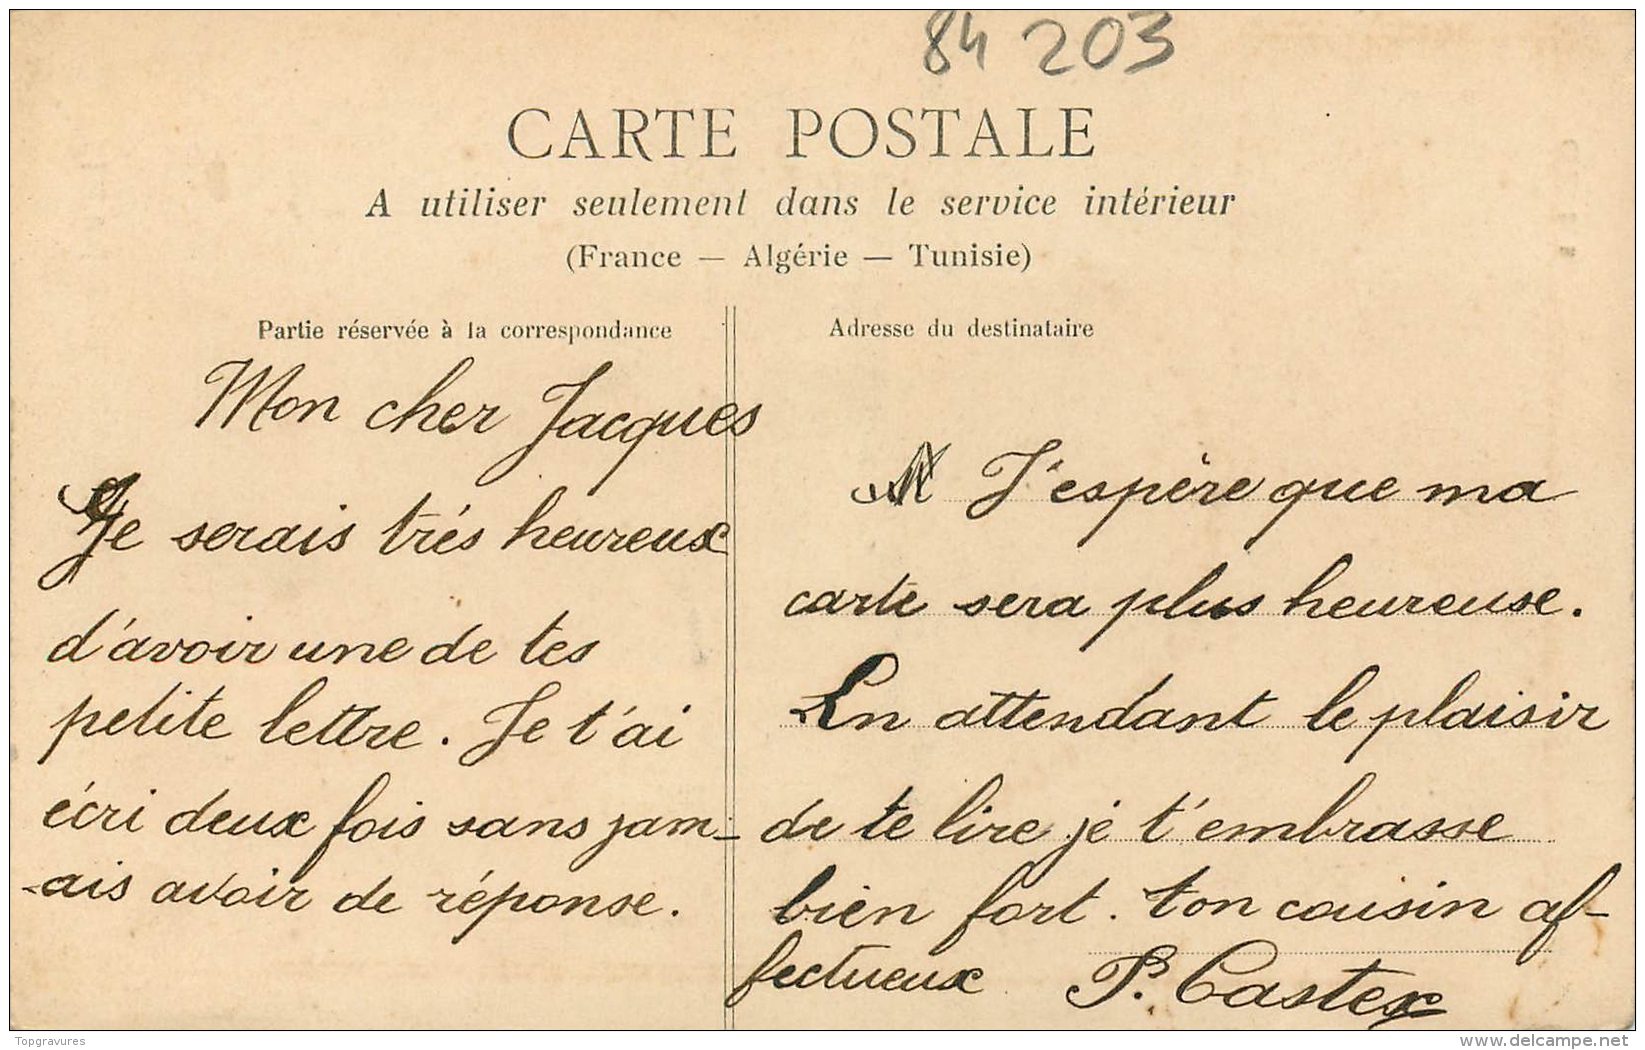 84 203
CARTE POSTALE
A utiliser seulement dans le service intérieur
(France — Algérie — Tunisie)
Partie réservée à la correspondance
Mon cher Jacques
Je serais trés heureux
d'avoir une de tes
petite lettre. Je t'ai
écri deux fois sans jam-
-ais avoir de réponse.
Adresse du destinataire
J'espère que ma
carte sera plus heureuse.
En attendant le plaisir
de te lire je t'embrasse
bien fort. ton cousin af-
fectueux P. Castex
Topgravures
delcampe.net